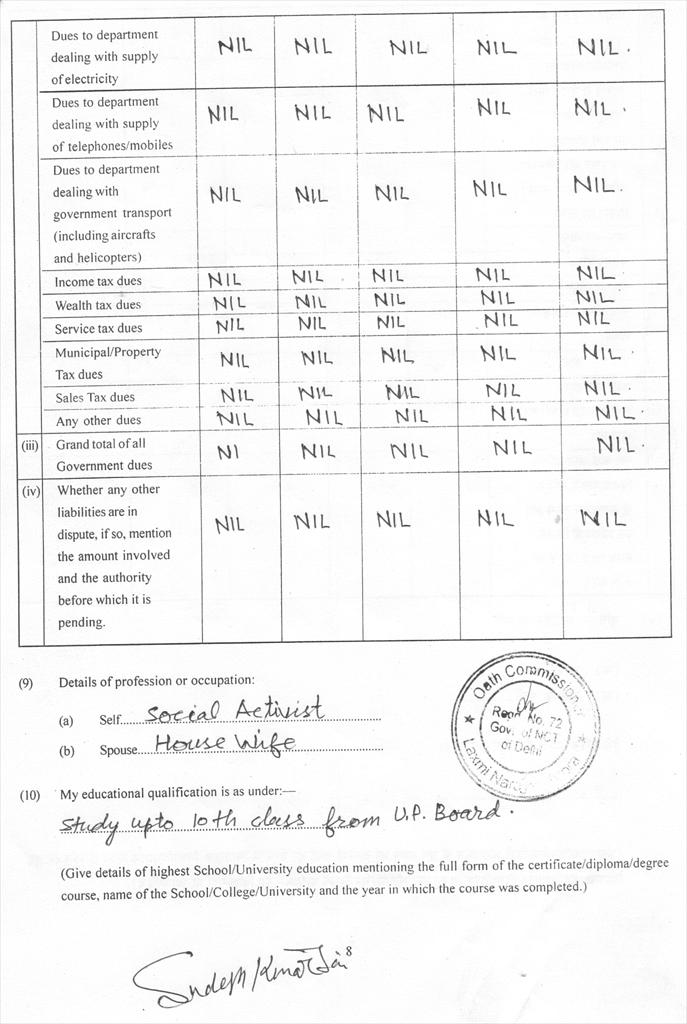 Dues to department
dealing with supply
of electricity
NIL NIL NIL NIL NIL.
Dues to department
dealing with supply
of telephones/mobiles
NIL NIL NIL NIL NIL.
Dues to department
dealing with
government transport
(including aircrafts
and helicopters)
NIL NIL NIL NIL NIL.
Income tax dues NIL NIL NIL NIL NIL.
Wealth tax dues NIL NIL NIL NIL NIL
Service tax dues NIL NIL NIL NIL NIL
Municipal/Property
Tax dues
NIL NIL NIL NIL NIL.
Sales Tax dues NIL NIL NIL NIL NIL.
Any other dues NIL NIL NIL NIL NIL.
(iii) Grand total of all
Government dues
NI NIL NIL NIL NIL.
(iv) Whether any other
liabilities are in
dispute, if so, mention
the amount involved
and the authority
before which it is
pending.
NIL NIL NIL NIL NIL
(9) Details of profession or occupation:
(a) Self Social Activist
(b) Spouse House Wife
Oath Commissioner
Regn. No. 72
Gov. of NCT
of Delhi
Laxmi
(10) My educational qualification is as under:—
Study upto 10th class from U.P. Board.
(Give details of highest School/University education mentioning the full form of the certificate/diploma/degree
course, name of the School/College/University and the year in which the course was completed.)
8
Sudesh Kumar Jain